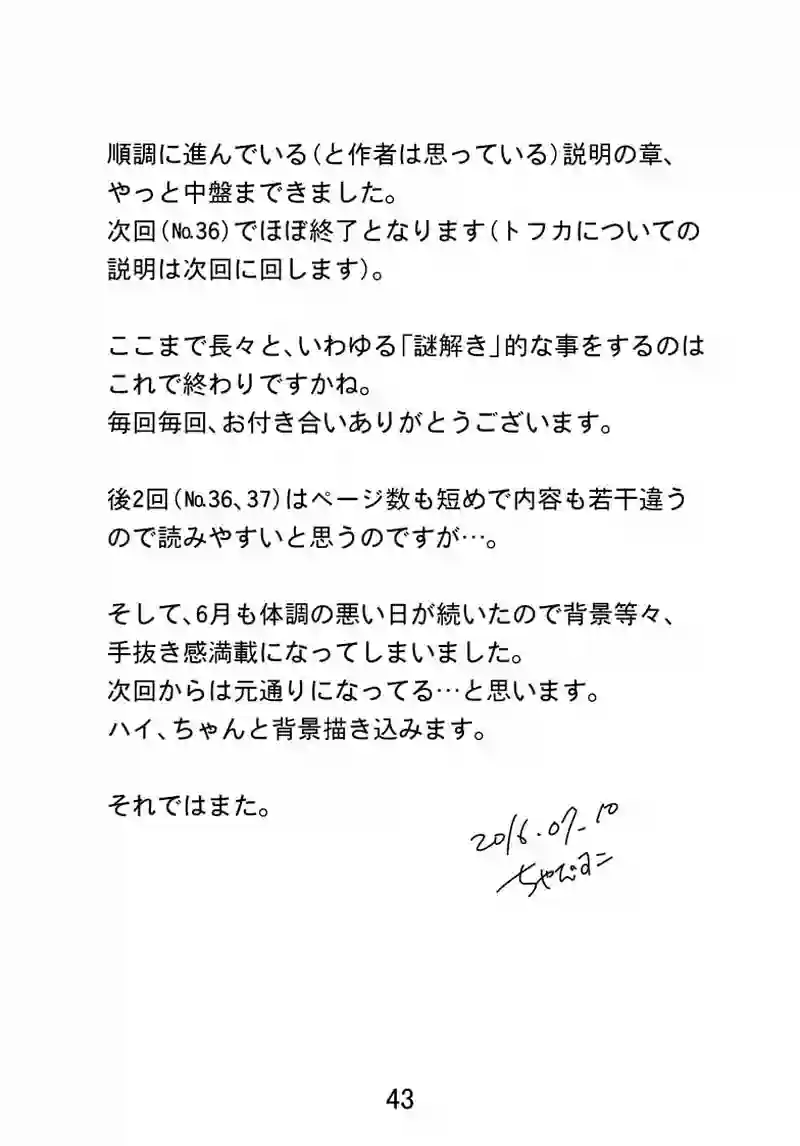 順調に進んでいる(と作者は思っている)説明の章、
やっと中盤まできました。
次回(№36)でほぼ終了となります(トフカについての
説明は次回に回します)。
ここまで長々と、いわゆる「謎解き」的な事をするのは
これで終わりですかね。
毎回毎回、お付き合いありがとうございます。
後2回(№36、37)はページ数も短めで内容も若干違う
ので読みやすいと思うのですが…。
そして、6月も体調の悪い日が続いたので背景等々、
手抜き感満載になってしまいました。
次回からは元通りになってる…と思います。
ハイ、ちゃんと背景描き込みます。
それではまた。
2016.07_10
43